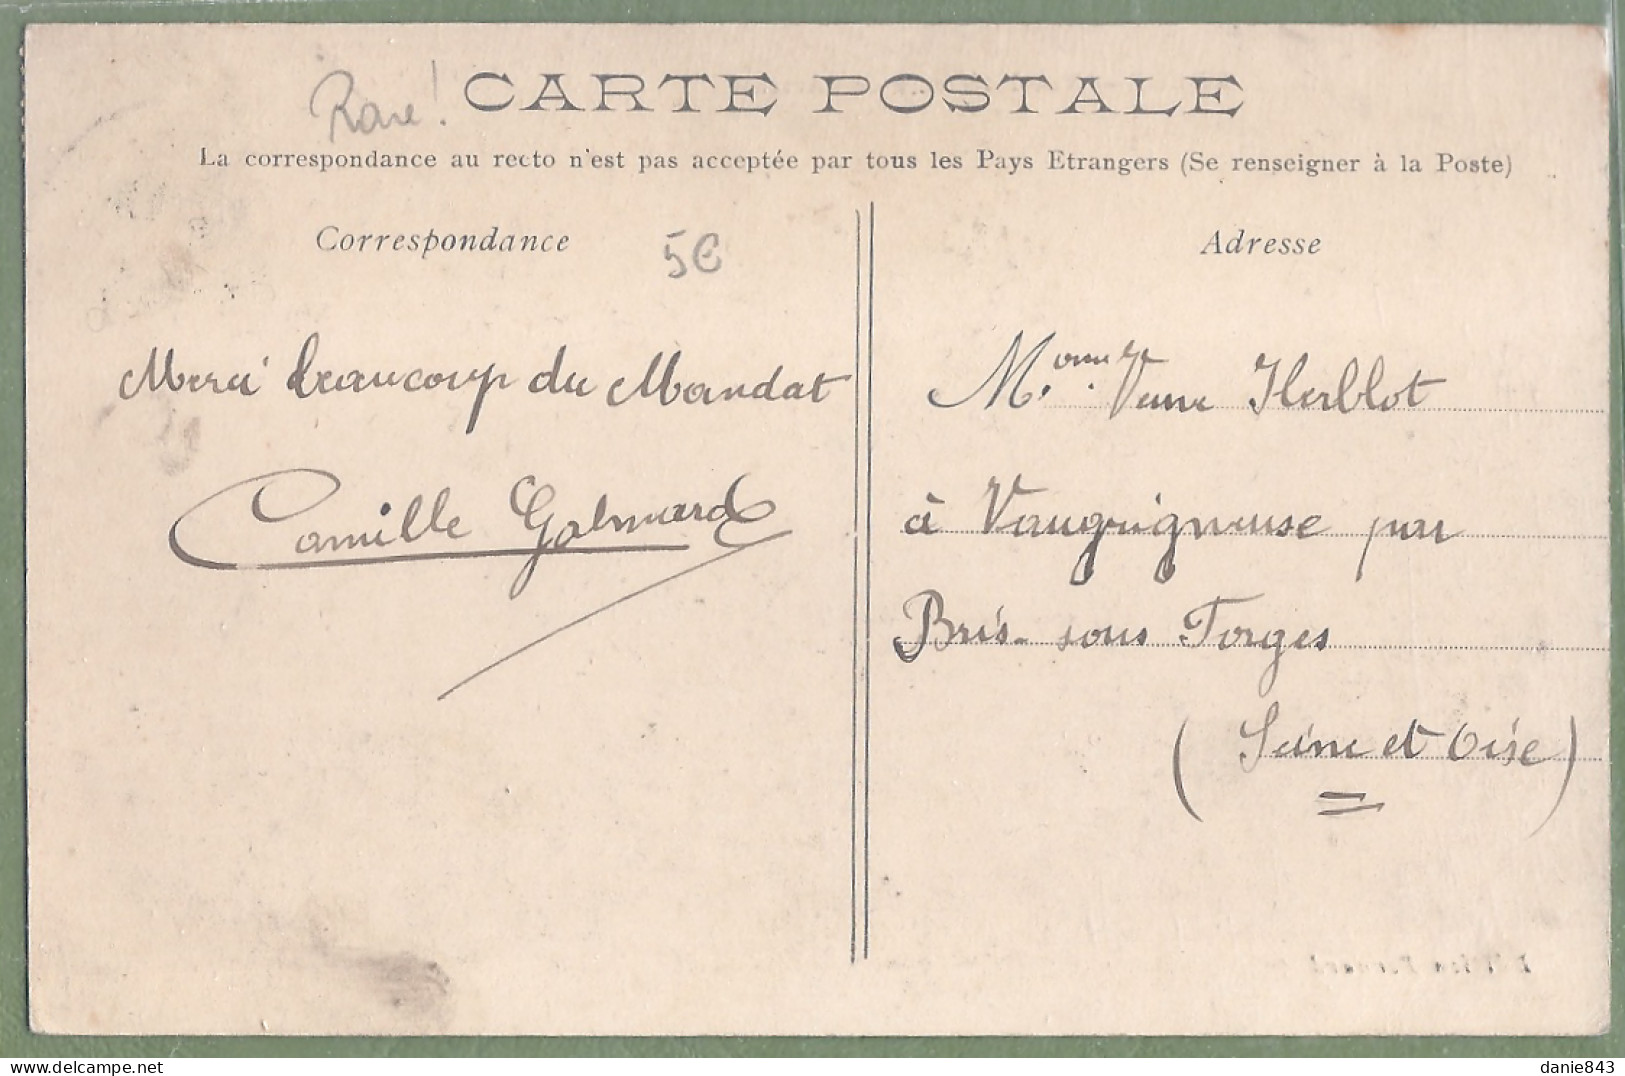 Rare!
CARTE POSTALE
La correspondance au recto n'est pas acceptée par tous les Pays Etrangers (Se renseigner à la Poste)
Correspondance
5€
Adresse
Merci beaucoup du Mandat
Camille Galmard
Madame Veuve Herblot
à Vaugrigneuse par
Briis-sous Forges
(Seine et Oise)
danie843